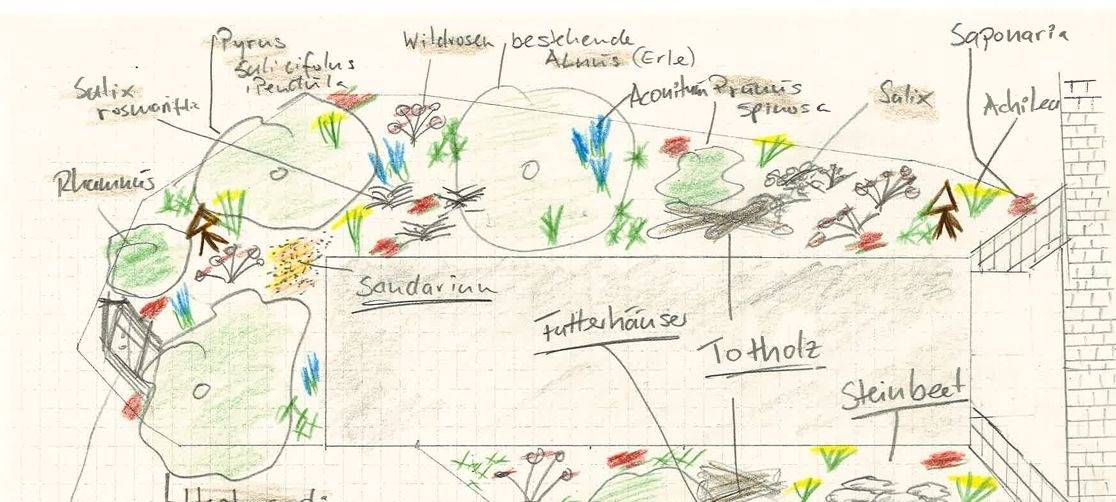 Pyrus
Salicifolus
Pendula
Wildrosen
bestehende
Alnus (Erle)
Saponaria
Salix
rosmarifolia
Aconitum
Prunus
spinosa
Salix
Achilea
Rhamnus
Sandarium
Futterhäuser
Totholz
Steinbeet